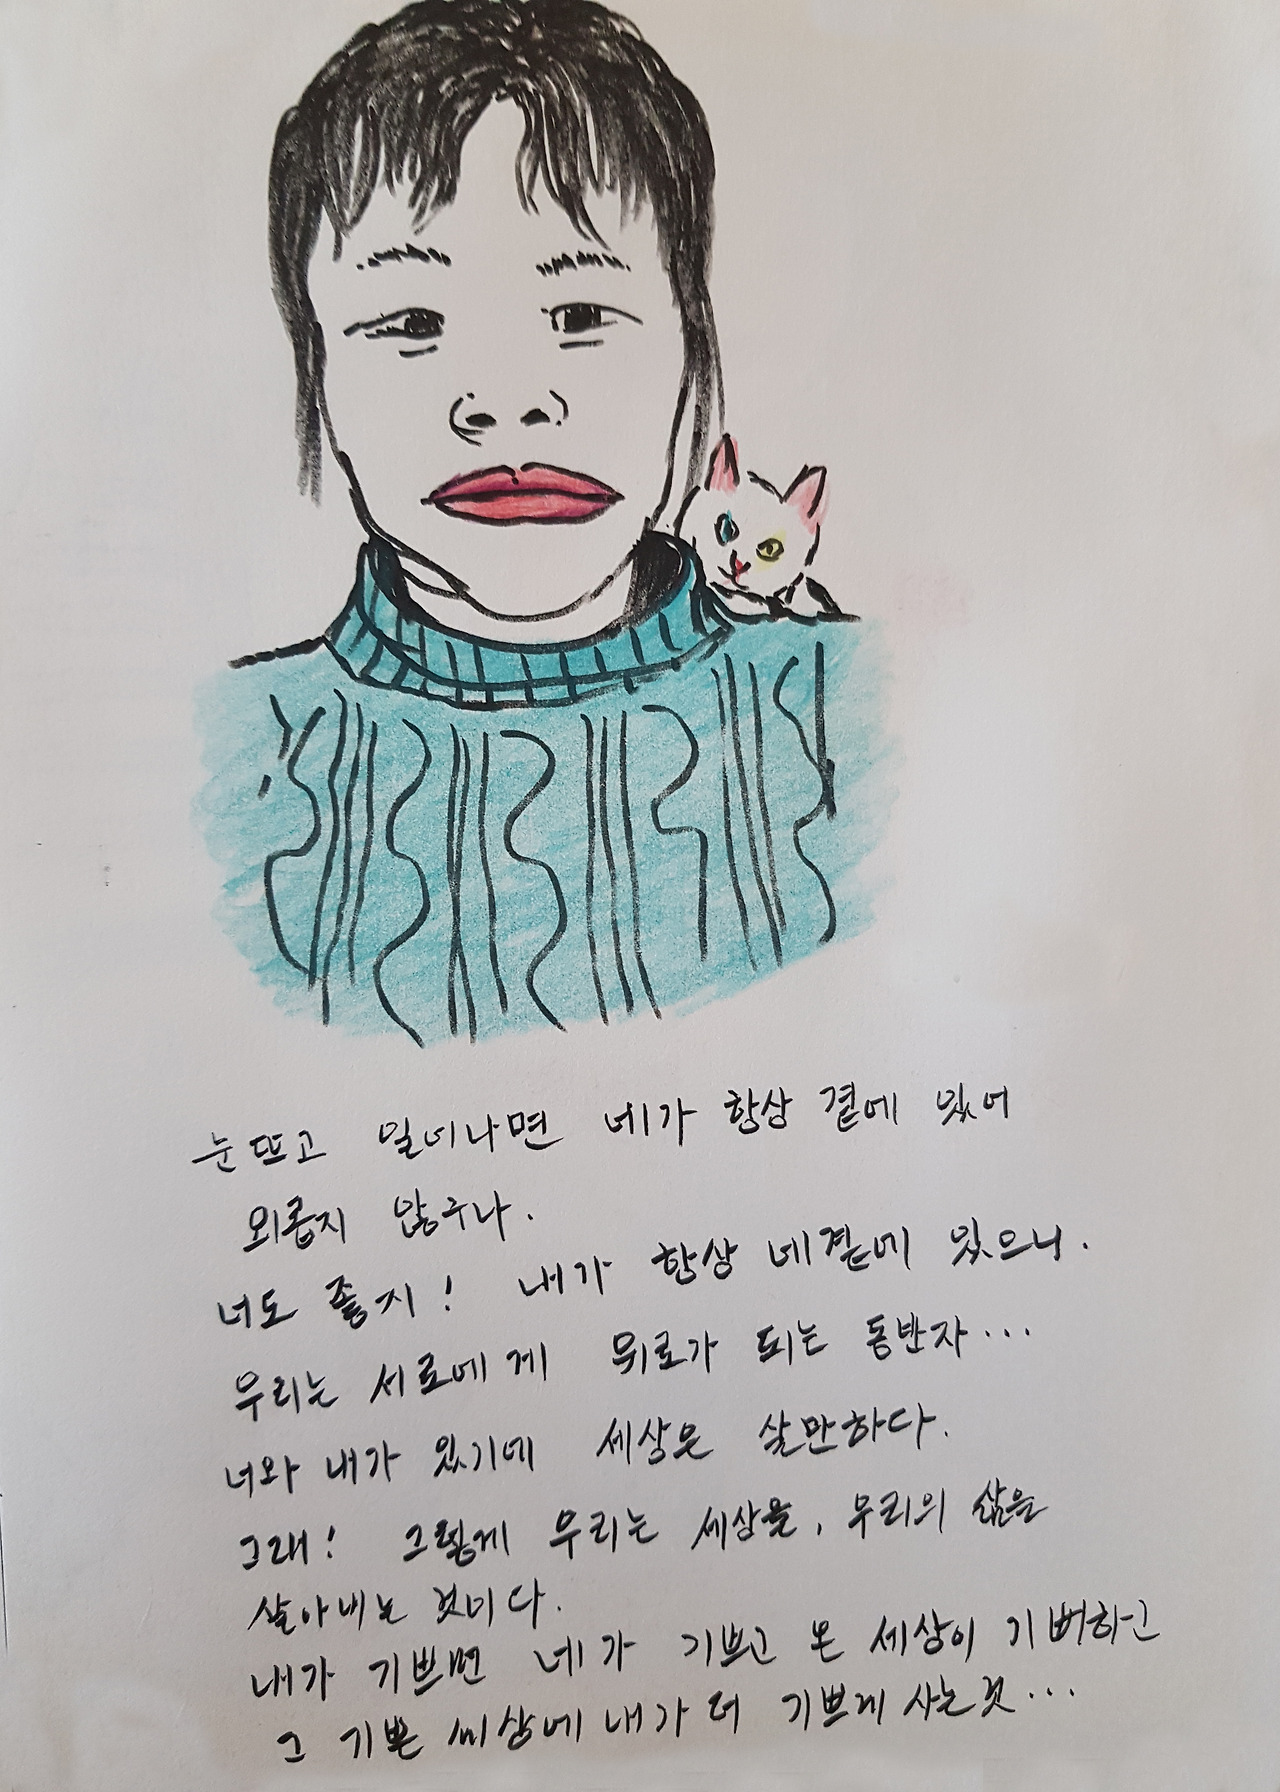 눈뜨고 일어나면 네가 항상 곁에 있어
외롭지 않구나.
너도 좋지! 내가 항상 네곁에 있으니.
우리는 서로에게 위로가 되는 동반자...
너와 내가 있기에 세상은 살만하다.
그래! 그렇게 우리는 세상을, 우리의 삶을
살아내는 것이다.
내가 기쁘면 네가 기쁘고 온 세상이 기뻐하고
그 기쁜 세상에 내가 더 기쁘게 사는것...